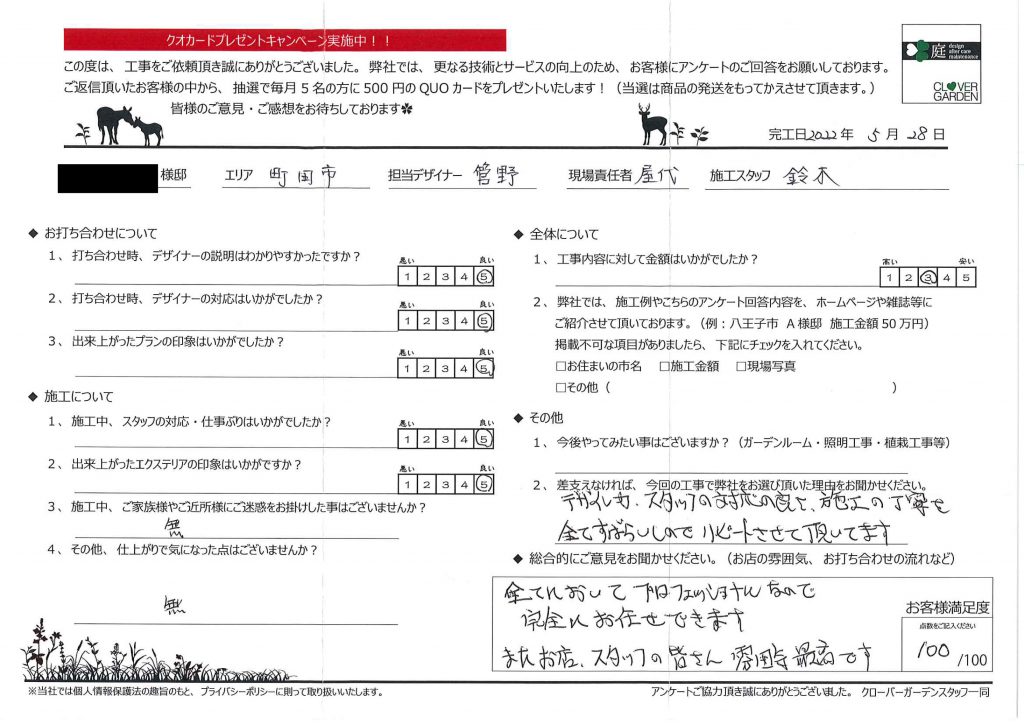 クオカードプレゼントキャンペーン実施中！！
この度は、工事をご依頼頂き誠にありがとうございました。弊社では、更なる技術とサービスの向上のため、お客様にアンケートのご回答をお願いしております。
ご返信頂いたお客様の中から、抽選で毎月5名の方に500円のQUOカードをプレゼントいたします！（当選は商品の発送をもってかえさせて頂きます。）
皆様のご意見・ご感想をお待ちしております✽
庭 design after care maintenance
CLOVER GARDEN
完工日2022年 5月28日
様邸 エリア 町田市 担当デザイナー 菅野 現場責任者 屋代 施工スタッフ 鈴木
◆ お打ち合わせについて
1、打ち合わせ時、デザイナーの説明はわかりやすかったですか？
悪い 良い
1 2 3 4 5
2、打ち合わせ時、デザイナーの対応はいかがでしたか？
悪い 良い
1 2 3 4 5
3、出来上がったプランの印象はいかがでしたか？
悪い 良い
1 2 3 4 5
◆ 施工について
1、施工中、スタッフの対応・仕事ぶりはいかがでしたか？
悪い 良い
1 2 3 4 5
2、出来上がったエクステリアの印象はいかがですか？
悪い 良い
1 2 3 4 5
3、施工中、ご家族様やご近所様にご迷惑をお掛けした事はございませんか？
無
4、その他、仕上がりで気になった点はございませんか？
無
◆ 全体について
1、工事内容に対して金額はいかがでしたか？
高い 安い
1 2 3 4 5
2、弊社では、施工例やこちらのアンケート回答内容を、ホームページや雑誌等に
ご紹介させて頂いております。（例：八王子市 A様邸 施工金額50万円）
掲載不可な項目がありましたら、下記にチェックを入れてください。
□お住まいの市名 □施工金額 □現場写真
□その他（ ）
◆ その他
1、今後やってみたい事はございますか？（ガーデンルーム・照明工事・植栽工事等）
2、差支えなければ、今回の工事で弊社をお選び頂いた理由をお聞かせください。
デザイン力、スタッフの対応の良さ、施工の丁寧さ
全てすばらしいのでリピートさせて頂いてます
◆ 総合的にご意見をお聞かせください。（お店の雰囲気、お打ち合わせの流れなど）
全てにおいてプロフェッショナルなので
完全にお任せできます
またお店、スタッフの皆さん 雰囲気最高です
お客様満足度
点数をご記入ください
100 /100
※当社では個人情報保護法の趣旨のもと、プライバシーポリシーに則って取り扱いいたします。
アンケートご協力頂き誠にありがとうございました。クローバーガーデンスタッフ一同